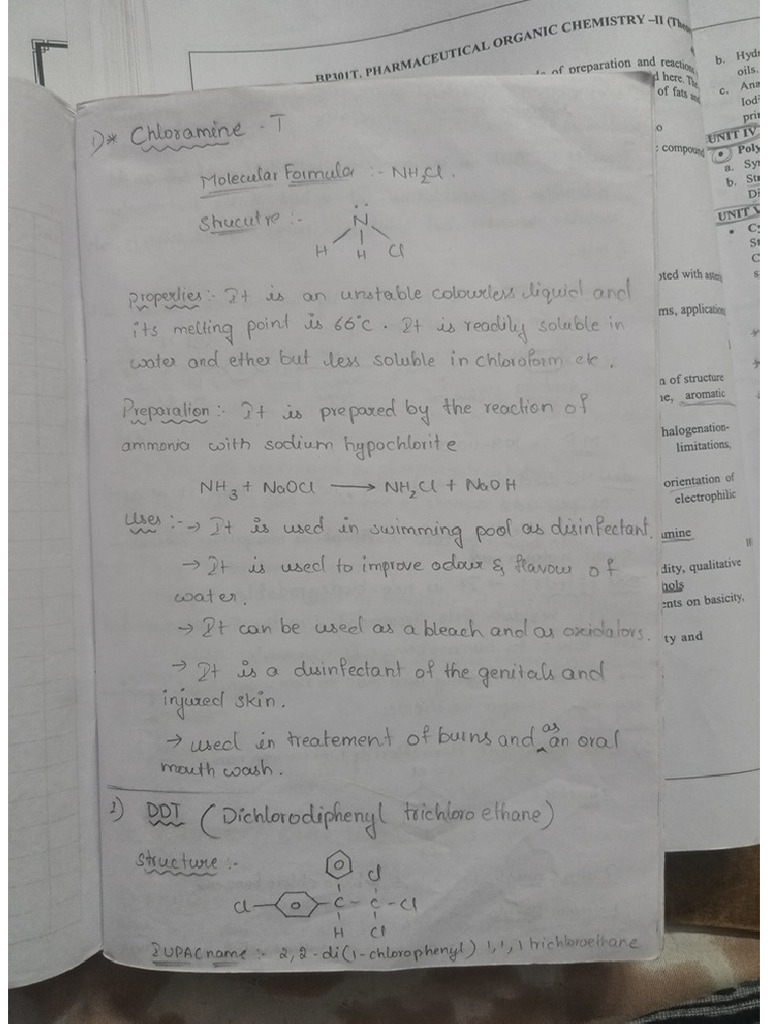 BP301T. PHARMACEUTICAL ORGANIC CHEMISTRY –II (Theo
of preparation and reactions
d here. The
of fats and
b. Hydr
oils.
c. Ana
Iodi
prin
UNIT IV
• Poly
a. Syn
b. Str
Di
UNIT V
1) * Chloramine - T
Molecular Formular :- NH2Cl.
Strucutre :-
N
H H Cl
Properties :- It is an unstable colourless liquid and
its melting point is 66°c. It is readily soluble in
water and ether but less soluble in chloroform etc.
Preparation :- It is prepared by the reaction of
ammonia with sodium hypochlorite
NH3 + NaOCl → NH2Cl + NaOH
Uses :- → It is used in swimming pool as disinfectant.
→ It is used to improve odour & flavour of
water.
→ It can be used as a bleach and as oxidators.
→ It is a disinfectant of the genitals and
injured skin.
→ used in treatement of burns and as an oral
mouth wash.
1) DDT (Dichlorodiphenyl trichloro ethane)
Structure :-
Cl
Cl C - C - Cl
H Cl
IUPAC name :- 2,2-di(1-chlorophenyl) 1,1,1 trichloroethane
compound
oted with aster
ms, application
n of structure
ne, aromatic
halogenation-
limitations,
orientation of
electrophilic
amine
dity, qualitative
hols
ents on basicity,
ty and